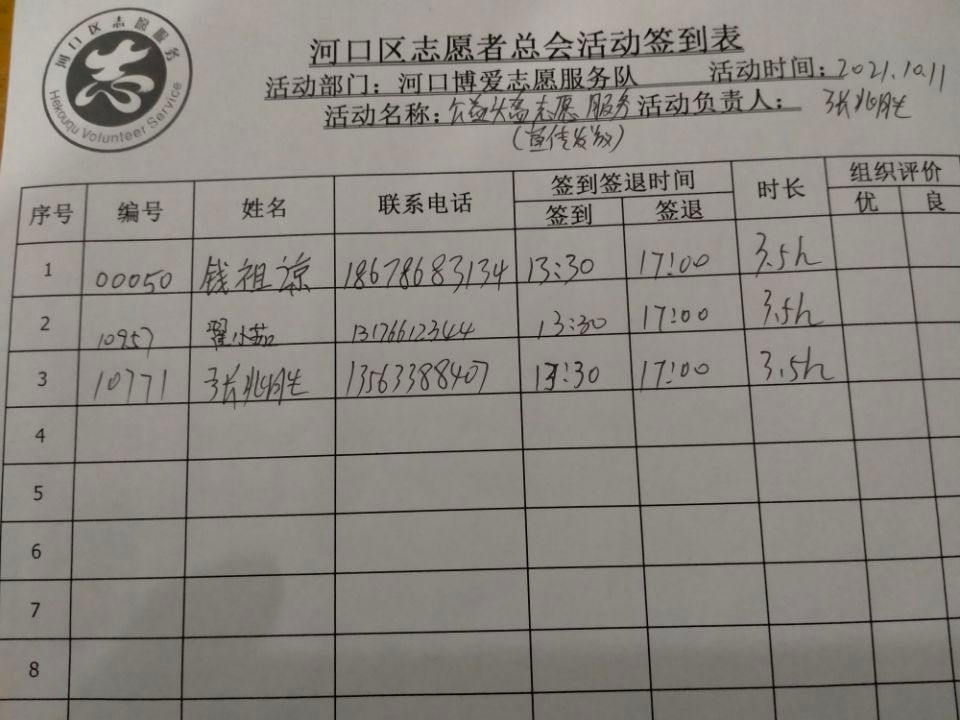 河口区志愿服务
志
Hekouqu Volunteer Service
河口区志愿者总会活动签到表
活动部门：河口博爱志愿服务队 活动时间：2021.10.11
活动名称：公益头盔志愿服务 活动负责人：张兆胜
（宣传发放）
序号 编号 姓名 联系电话 签到签退时间 时长 组织评价
签到 签退 优 良
1 00050 钱祖凉 18678683134 13:30 17:00 3.5h
2 10957 翟小茹 13176612344 13:30 17:00 3.5h
3 10771 张兆胜 13563388407 13:30 17:00 3.5h
4
5
6
7
8